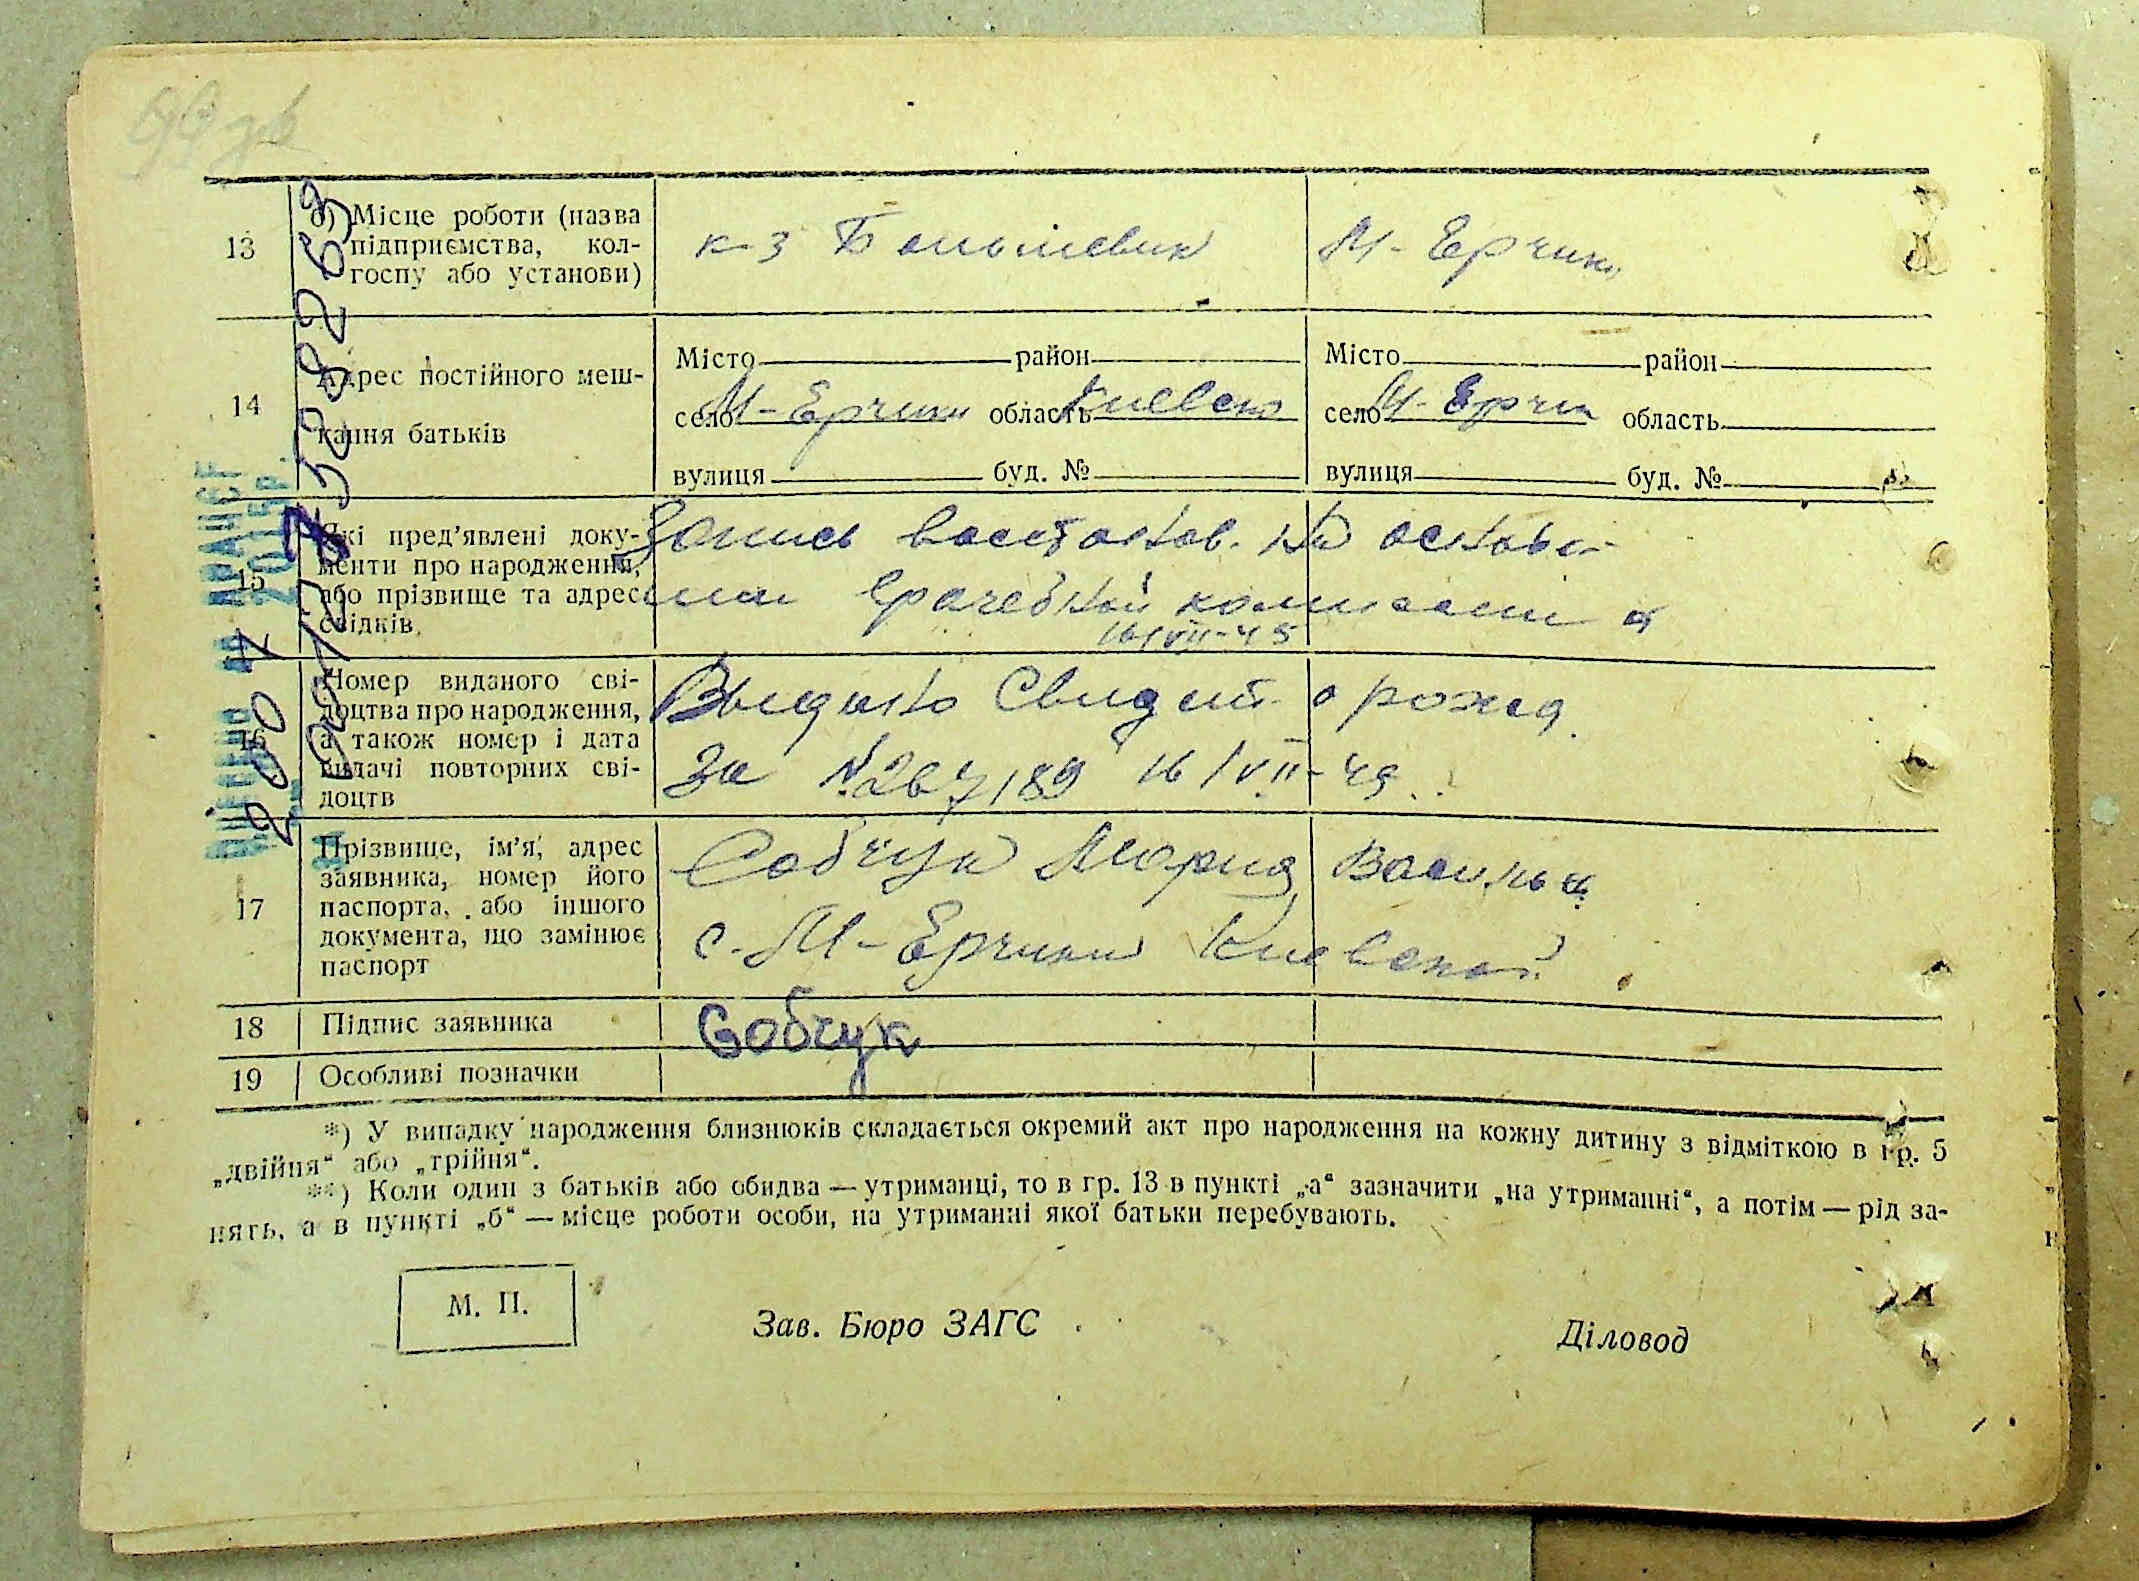 13 б) Місце роботи (назва
підприємства, кол-
госпу або установи)
к-з Большевик
М-Ерчики
14 Адрес постійного меш-
кання батьків
Місто район
село М-Ерчики область Киевско
вулиця буд. №
Місто район
село М-Ерчи область
вулиця буд. №
15 Які пред’явлені доку-
менти про народження,
або прізвище та адрес
свідків
Запись восстанов. На основа-
нии врачебной комиссии от
16/VII-45
16 Номер виданого сві-
доцтва про народження,
а також номер і дата
видачі повторних сві-
доцтв
Выдано Свидет. о рожд.
За № 267189 16/VII-45.
17 Прізвище, ім’я, адрес
заявника, номер його
паспорта, або іншого
документа, що замінює
паспорт
Собчук Мария Василь
с. М-Ерчики Киевской
18 Підпис заявника
Собчук
19 Особливі позначки
*) У випадку народження близнюків складається окремий акт про народження на кожну дитину з відміткою в гр. 5
„двійня“ або „трійня“.
**) Коли один з батьків або обидва — утриманці, то в гр. 13 в пункті „а“ зазначити „на утриманні“, а потім — рід за-
нять, а в пункті „б“ — місце роботи особи, на утриманні якої батьки перебувають.
М. П.
Зав. Бюро ЗАГС
Діловод